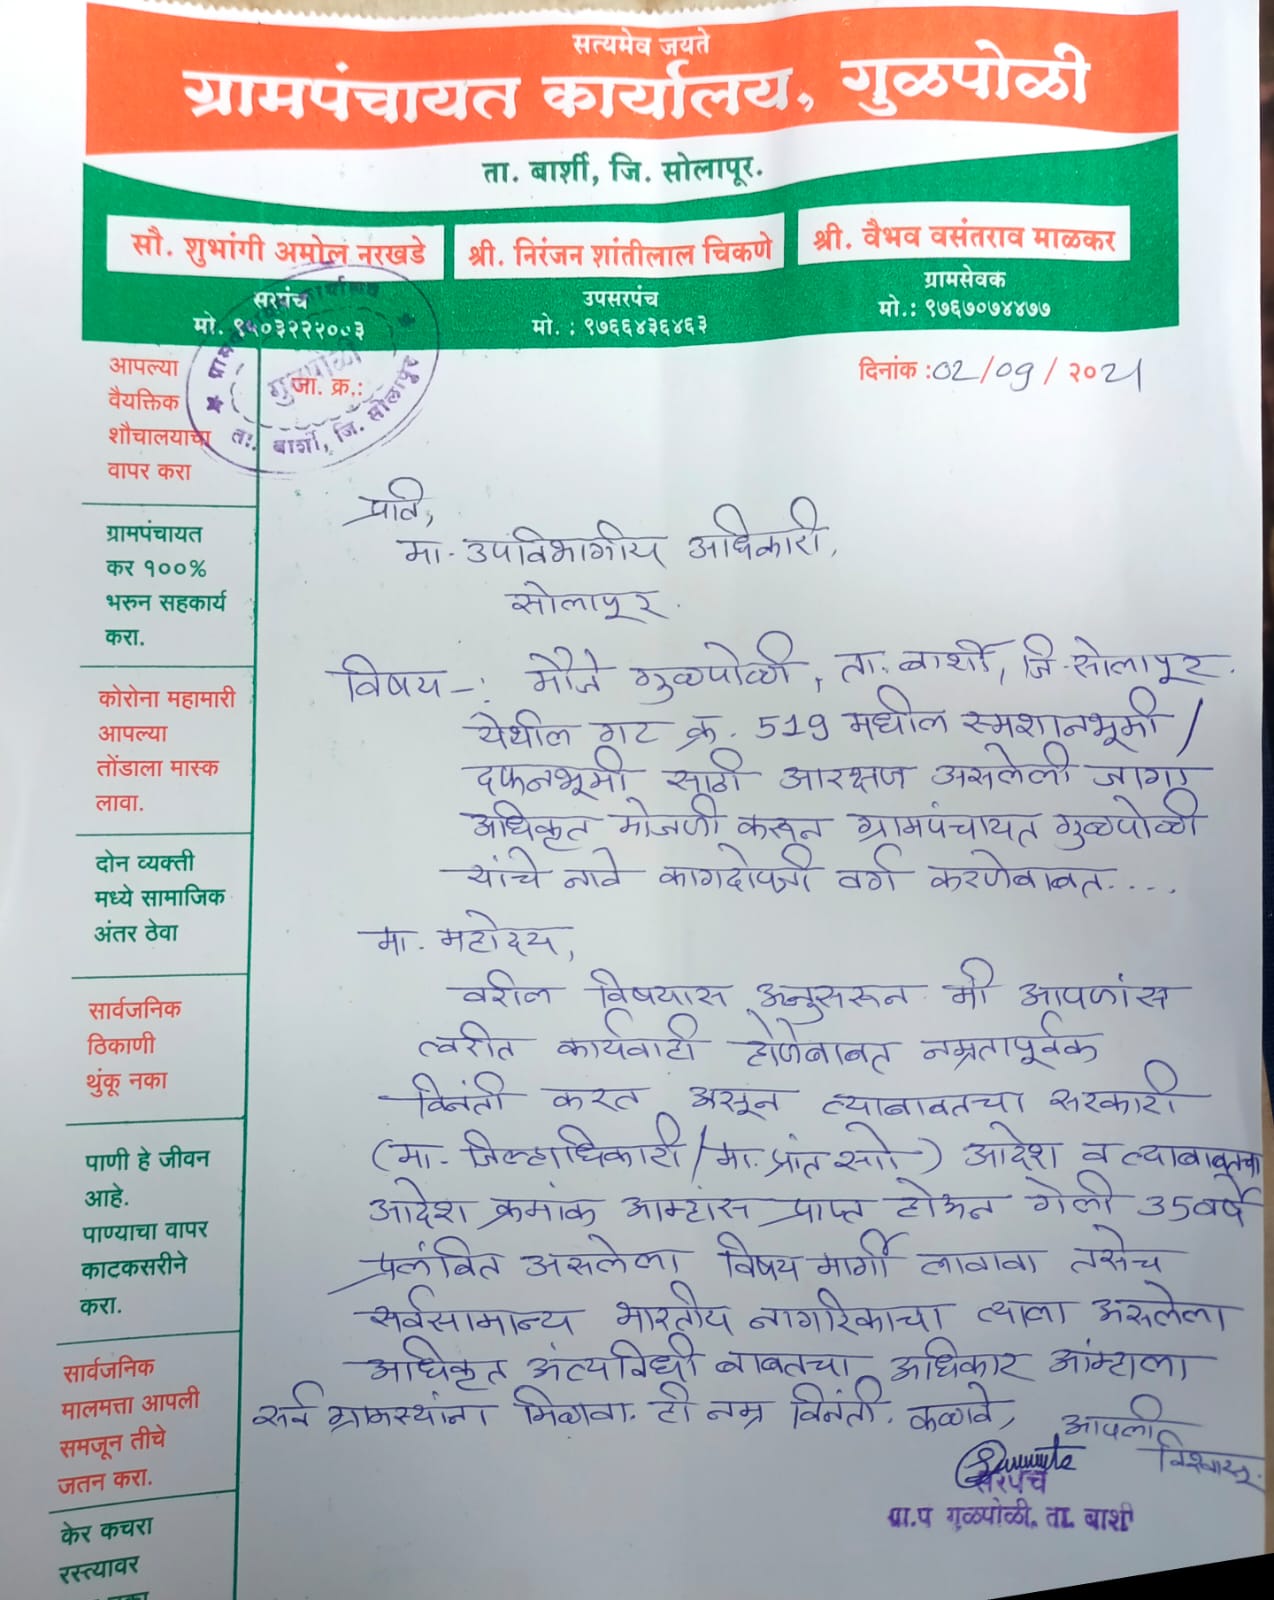 सत्यमेव जयते
ग्रामपंचायत कार्यालय, गुळपोळी
ता. बार्शी, जि. सोलापूर.
सौ. शुभांगी अमोल नरखडे
सरपंच
श्री. निरंजन शांतीलाल चिकणे
उपसरपंच
मो. : ९७६६४३६४६३
श्री. वैभव वसंतराव माळकर
ग्रामसेवक
मो.: ९७६७०७४४७७
जा. क्र.:
गुळपोळी
ता. बार्शी, जि. सोलापूर
दिनांक :02/09/२०21
आपल्या
वैयक्तिक
शौचालयाचा
वापर करा
ग्रामपंचायत
कर १००%
भरुन सहकार्य
करा.
कोरोना महामारी
आपल्या
तोंडाला मास्क
लावा.
दोन व्यक्ती
मध्ये सामाजिक
अंतर ठेवा
सार्वजनिक
ठिकाणी
थुंकू नका
पाणी हे जीवन
आहे.
पाण्याचा वापर
काटकसरीने
करा.
सार्वजनिक
मालमत्ता आपली
समजून तीचे
जतन करा.
केर कचरा
रस्त्यावर
प्रति,
मा. उपविभागीय अधिकारी,
सोलापूर.
विषय -: मौजे गुळपोळी, ता. बार्शी, जि. सोलापूर.
येथील गट क्र. 519 मधील स्मशानभूमी /
दफनभूमी साठी आरक्षण असलेली जागा
अधिकृत मोजणी करून ग्रामपंचायत गुळपोळी
यांचे नावे कागदोपत्री वर्ग करणेबाबत....
मा. महोदय,
वरील विषयास अनुसरून मी आपणांस
त्वरीत कार्यवाही होणेबाबत नम्रतापूर्वक
विनंती करत असून त्याबाबतचा सरकारी
(मा. जिल्हाधिकारी/मा. प्रांत सो) आदेश व त्याबाबतचा
आदेश क्रमांक आम्हांस प्राप्त होऊन गेली 35 वर्षे
प्रलंबित असलेला विषय मार्गी लावावा तसेच
सर्वसामान्य भारतीय नागरिकाचा त्याला असलेला
अधिकृत अंत्यविधी बाबतचा अधिकार आंम्हाला
सर्व ग्रामस्थांना मिळावा. ही नम्र विनंती. कळावे,
आपली
विश्वासू.
सरपंच
ग्रा.प गुळपोळी. ता. बार्शी